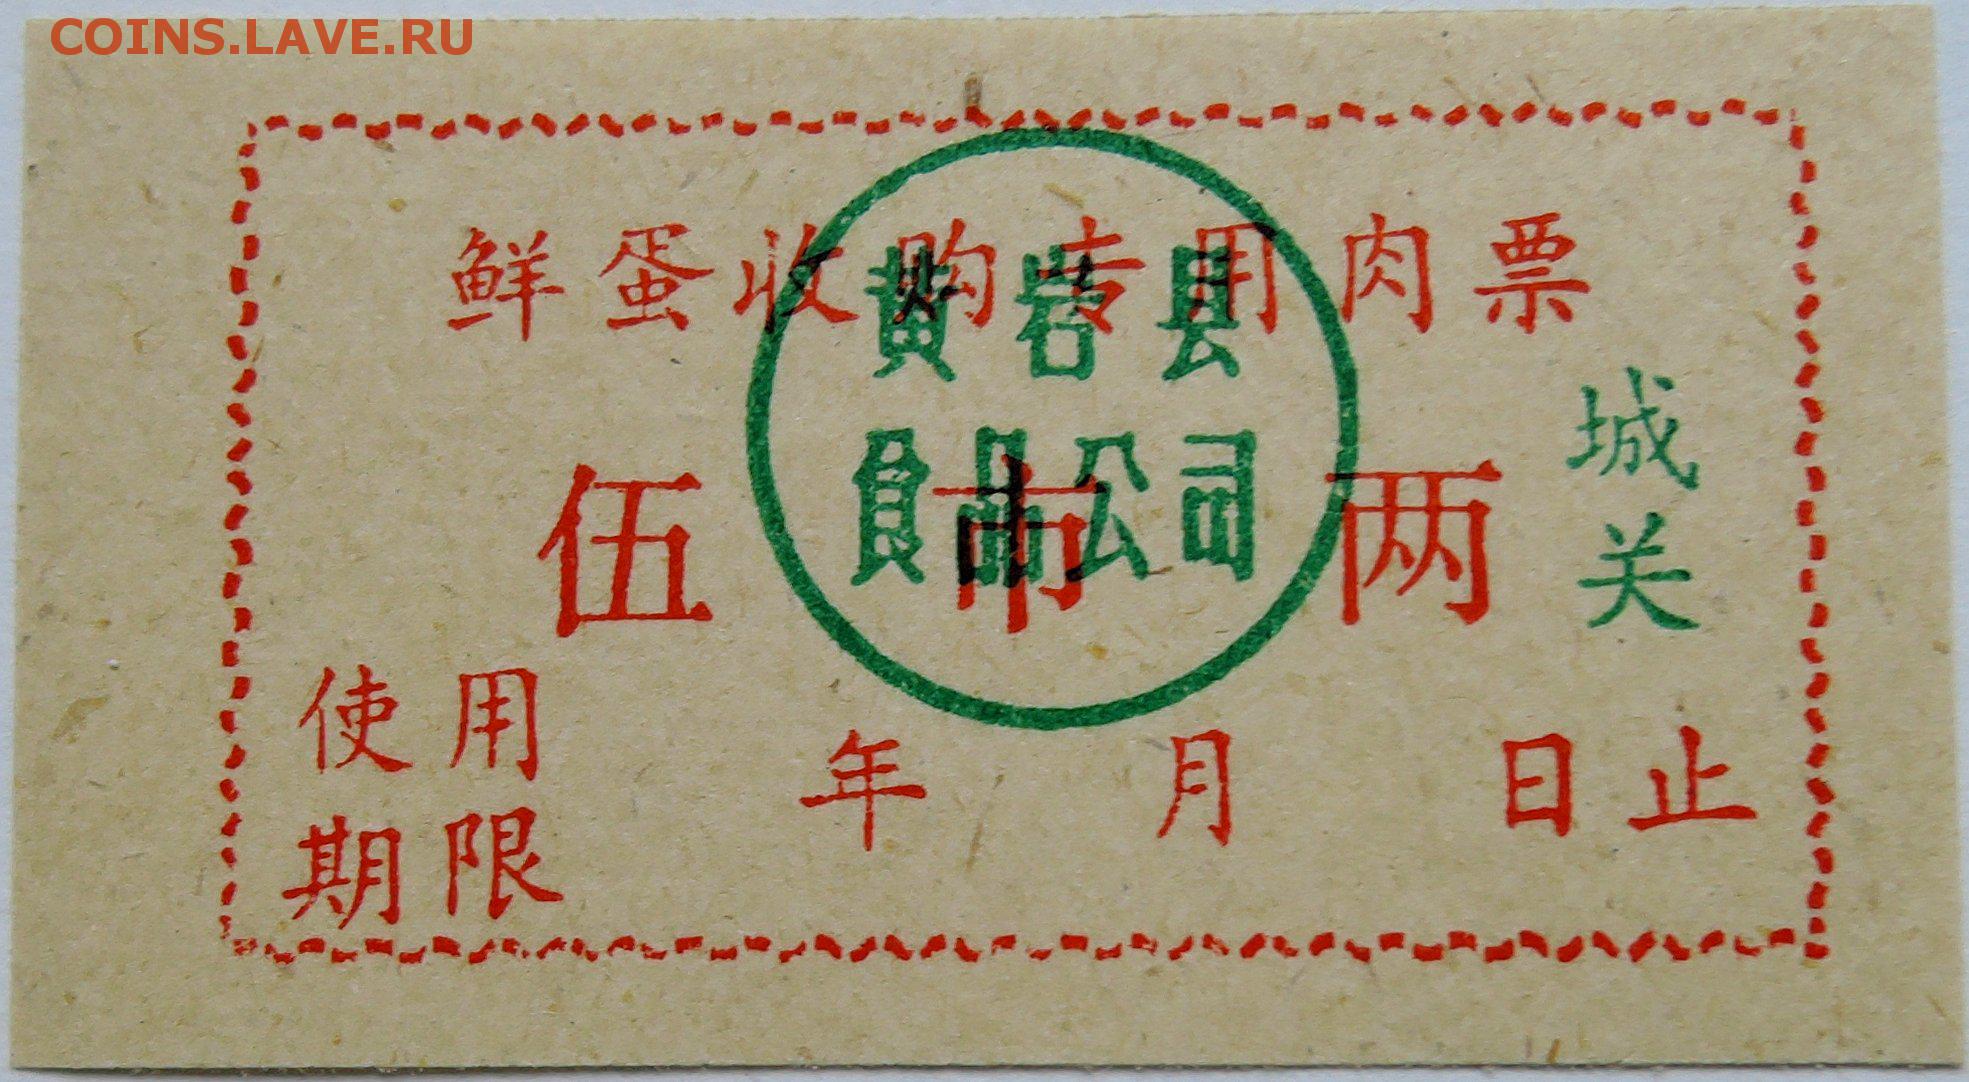 COINS.LAVE.RU
鲜蛋收购专用肉票
黄岩县
食品公司
伍市两
城关
使用
期限
年 月 日止